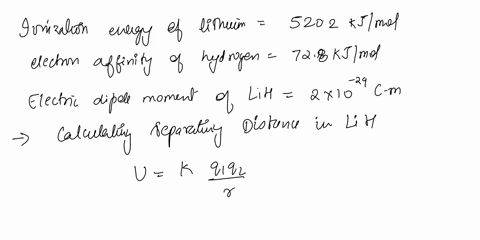 Ionization energy of lithium = 5202 kJ/mol
electron affinity of hydrogen = 72.8 KJ/mol
Electric dipole moment of LiH = 2×10⁻²⁹ C-m
→ Calculating Separating Distance in LiH
U = K q₁q₂/r